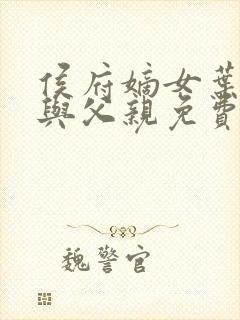 侯府嫡女葉
與父親免費
魏警官